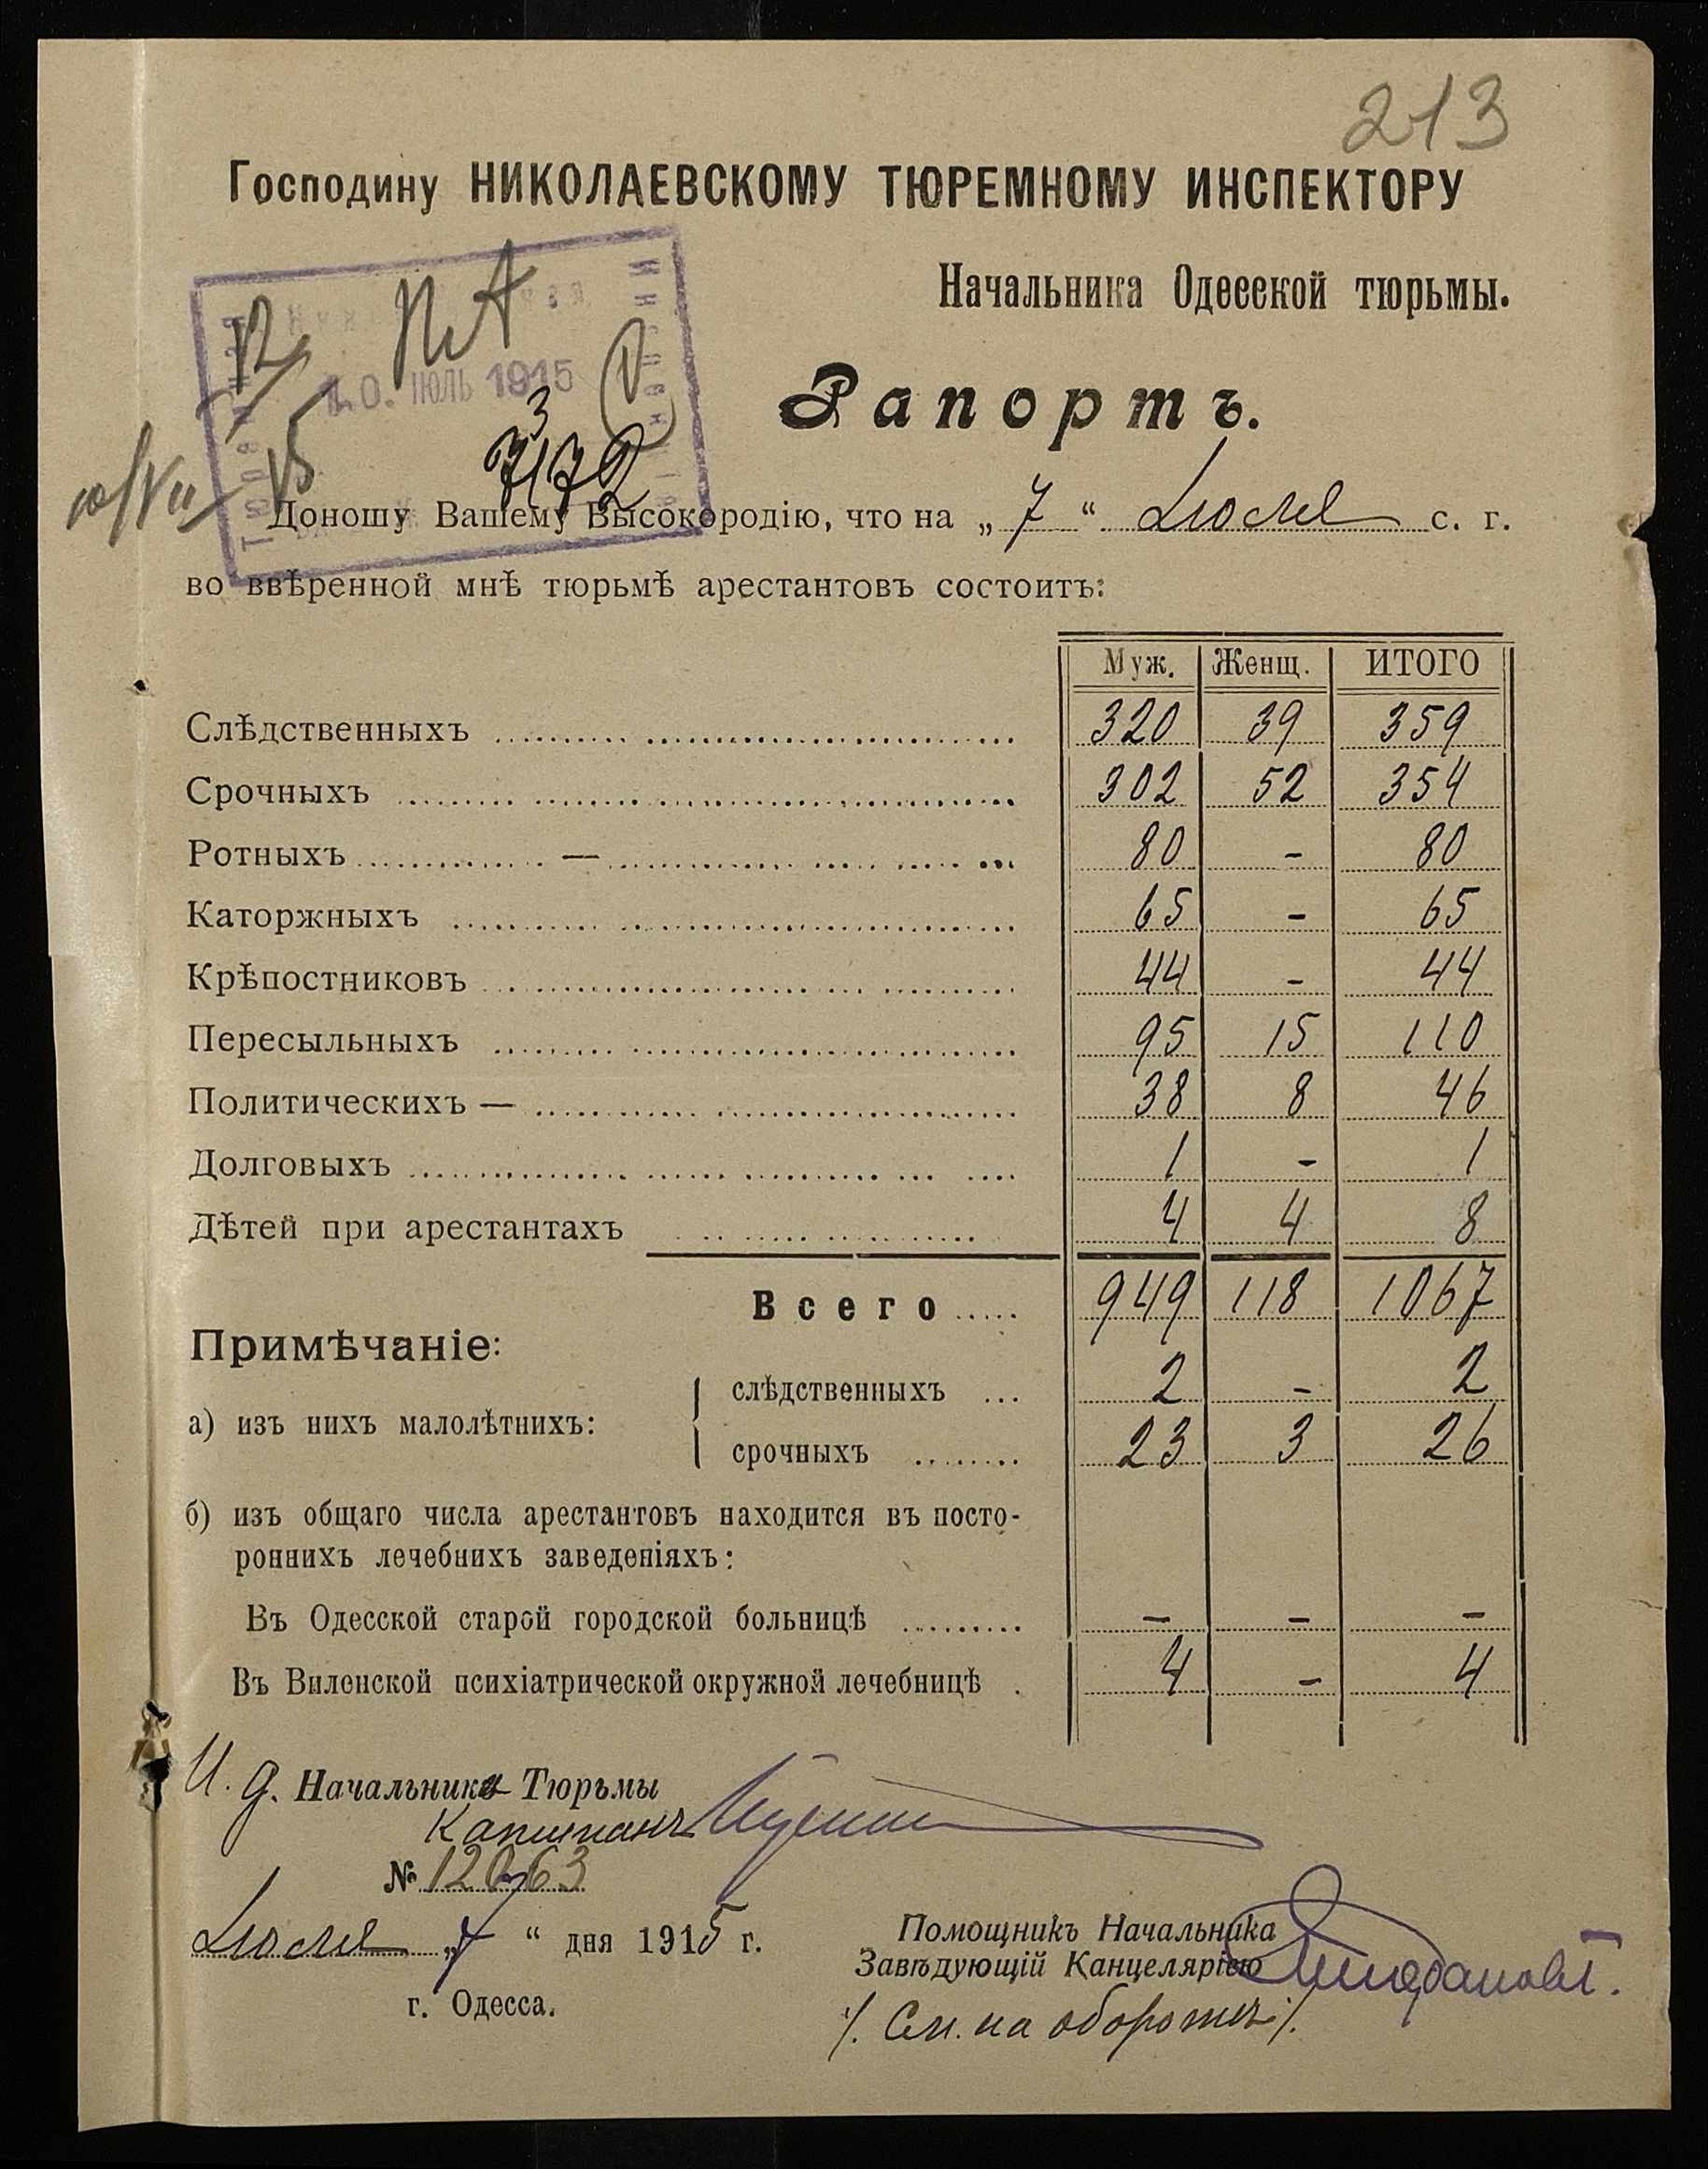 213
Господину НИКОЛАЕВСКОМУ ТЮРЕМНОМУ ИНСПЕКТОРУ
Начальника Одесской тюрьмы.
10. ІЮЛЬ 1915
Рапортъ.
Доношу Вашему Высокородію, что на „ 7 “ Іюля с. г.
во ввѣренной мнѣ тюрьмѣ арестантовъ состоитъ:
Муж. Женщ. ИТОГО
Слѣдственныхъ 320 39 359
Срочныхъ 302 52 354
Ротныхъ — 80 - 80
Каторжныхъ 65 - 65
Крѣпостниковъ 44 - 44
Пересыльныхъ 95 15 110
Политическихъ — 38 8 46
Долговыхъ 1 - 1
Дѣтей при арестантахъ 4 4 8
Всего 949 118 1067
Примѣчаніе:
а) изъ нихъ малолѣтнихъ:
слѣдственныхъ 2 - 2
срочныхъ 23 3 26
б) изъ общаго числа арестантовъ находится въ посто-
роннихъ лечебнихъ заведеніяхъ:
Въ Одесской старой городской больницѣ - - -
Въ Виленской психіатрической окружной лечебницѣ 4 - 4
И. д. Начальника Тюрьмы
Капитанъ
№ 12063
Іюля „7“ дня 1915 г.
г. Одесса.
Помощникъ Начальника
Завѣдующій Канцеляріею
/. См. на оборотѣ /.